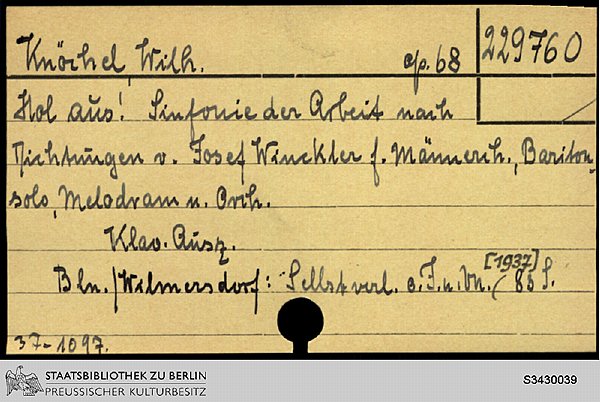 Knöchel, Wilh. op. 68 229760
Hol aus! Sinfonie der Arbeit nach
Dichtungen v. Josef Winckler f. Männerch., Bariton-
solo, Melodram u. Orch.
Klav. Ausz.
Bln./Wilmersdorf: Selbstverl. o. J. u. Vn. [1937] 85 S.
37-1097.
STAATSBIBLIOTHEK ZU BERLIN
PREUSSISCHER KULTURBESITZ
S3430039